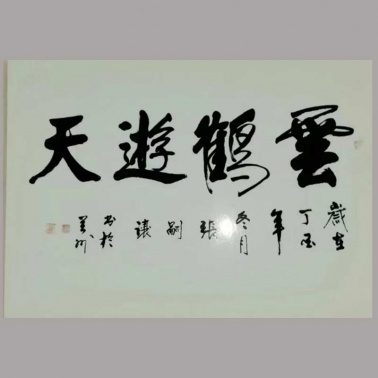 雲鶴遊天
歲在丁酉年冬月張嗣讓書於州